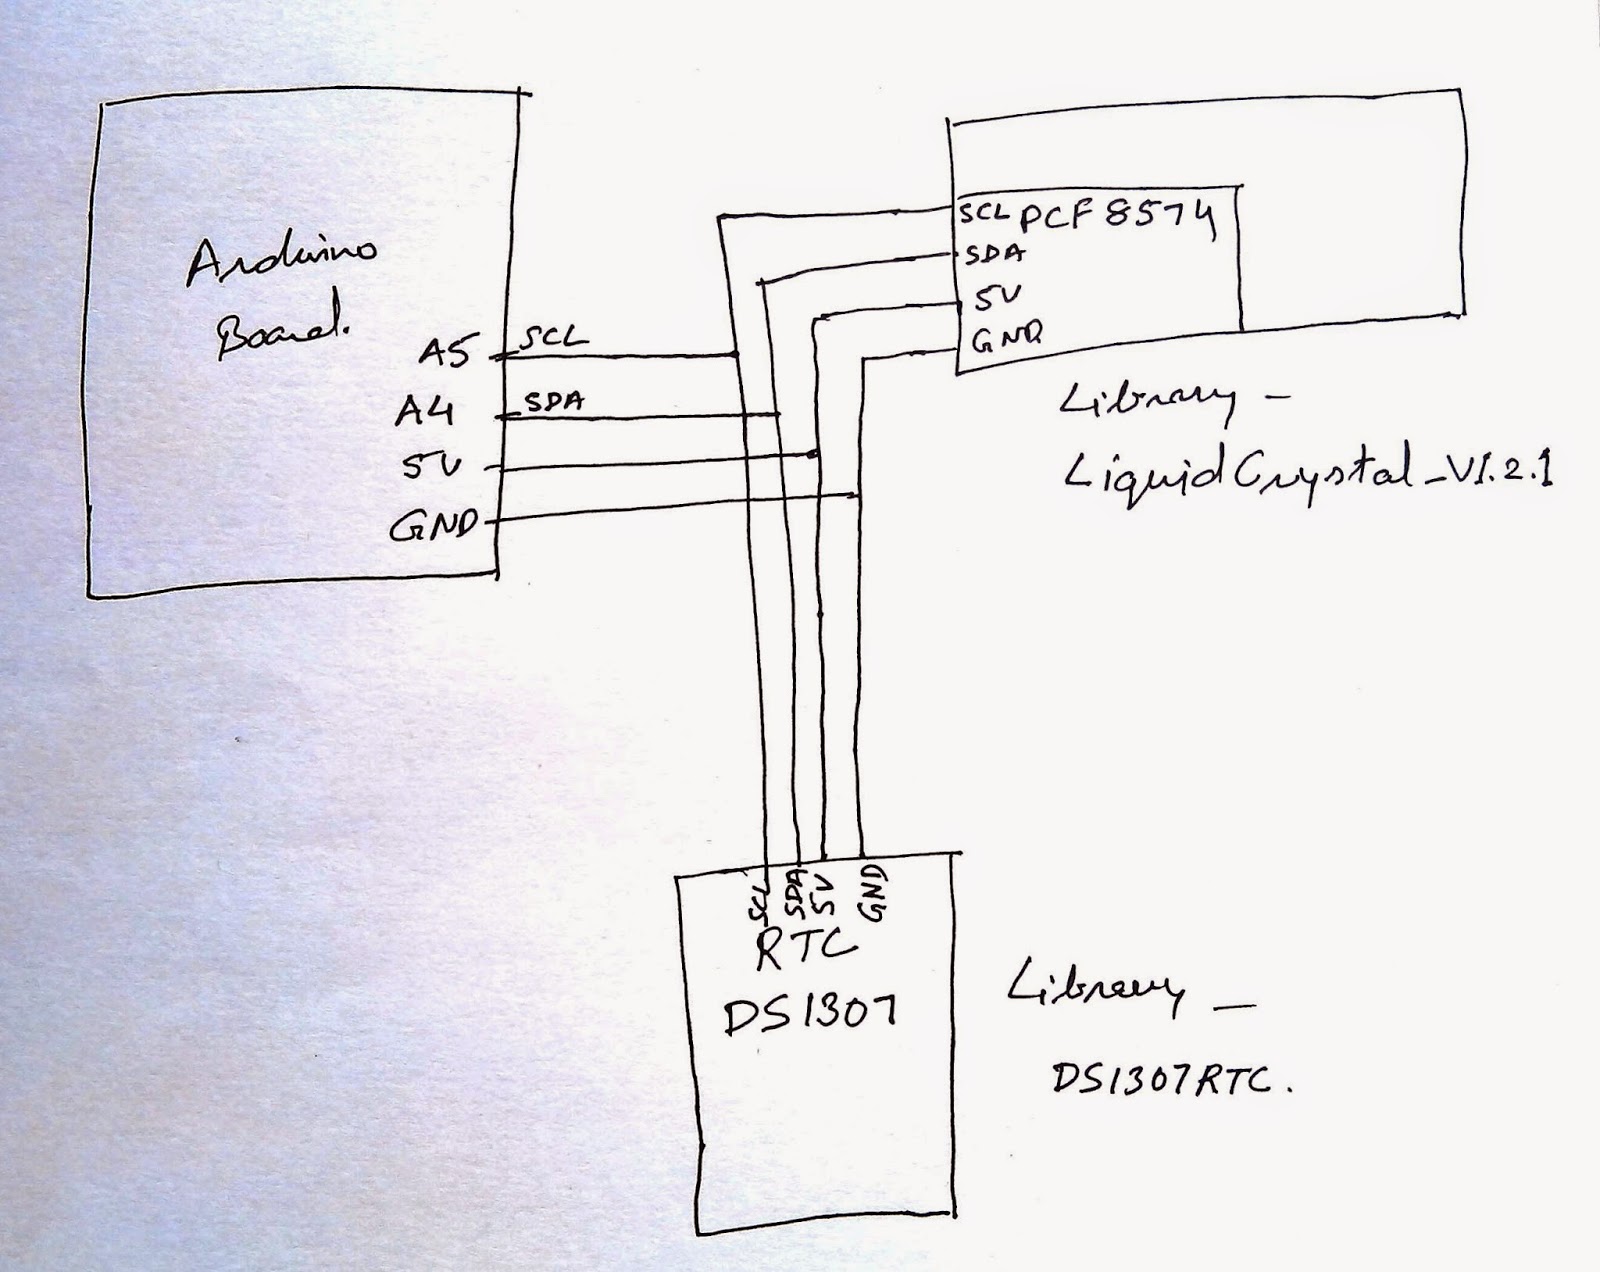 Arduino
Board.
A5
A4
5V
GND
SCL
SDA
SCL PCF8574
SDA
5V
GND
Library -
LiquidCrystal_V1.2.1
SCL
SDA
5V
GND
RTC
DS1307
Library -
DS1307RTC.